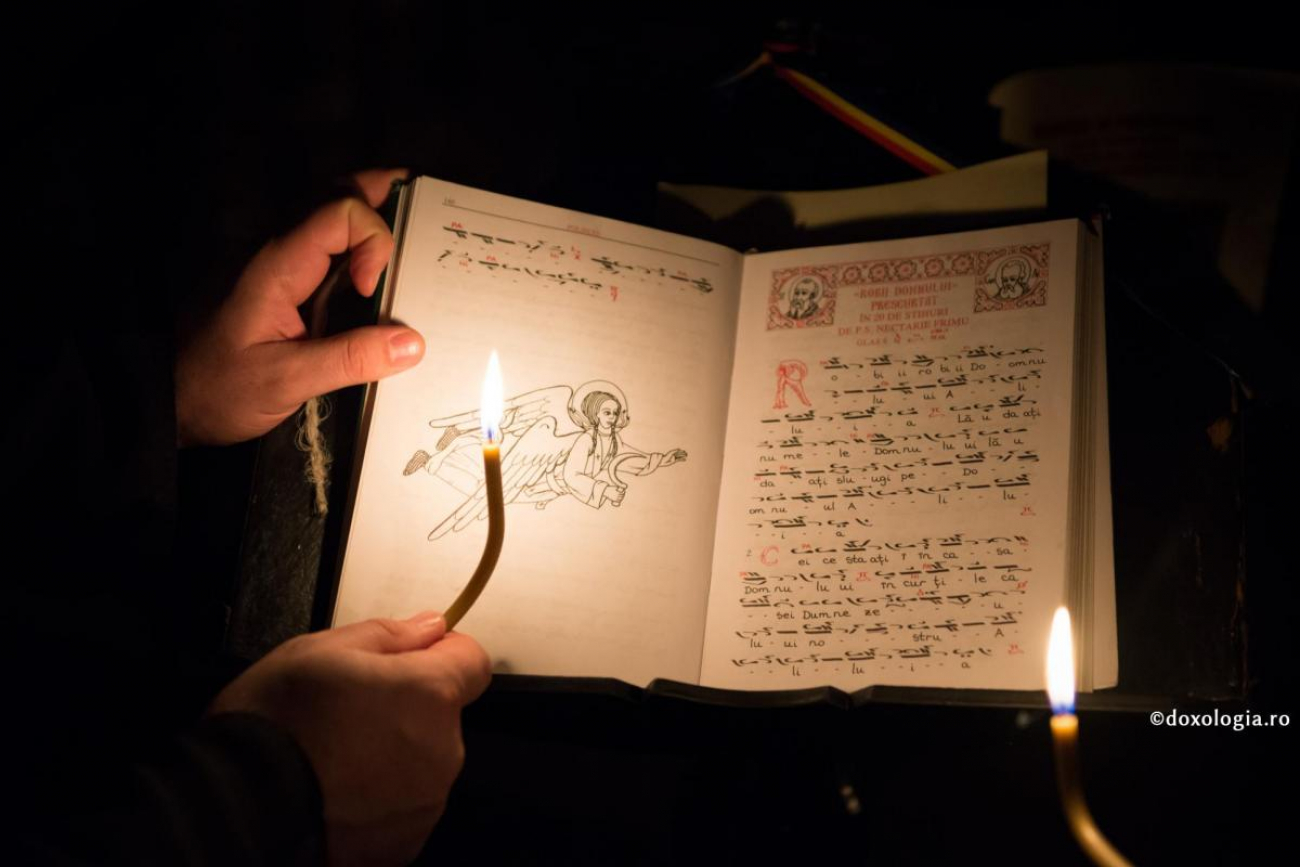 POLIELEU
«ROBII DOMNULUI»
PRESCURTAT
ÎN 20 DE STIHURI
DE P.S. NECTARIE FRIMU
GLAS
R o bi ii ro bi ii Do - om nu
lu ui A li
lu i a Lă u da ați
nu me - le Dom nu lu ui lă u
da ați slu ugi pe Do
om nu ul A li lu
i a
2 C ei ce sta ați î în ca sa
Dom nu - lu ui în cur ți - le ca
sei Dum ne ze u
lu - ui no stru A
li lu i a
©doxologia.ro